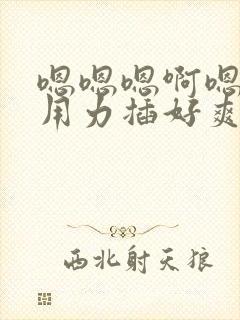 嗯嗯嗯啊嗯
用力插好爽
西北射天狼